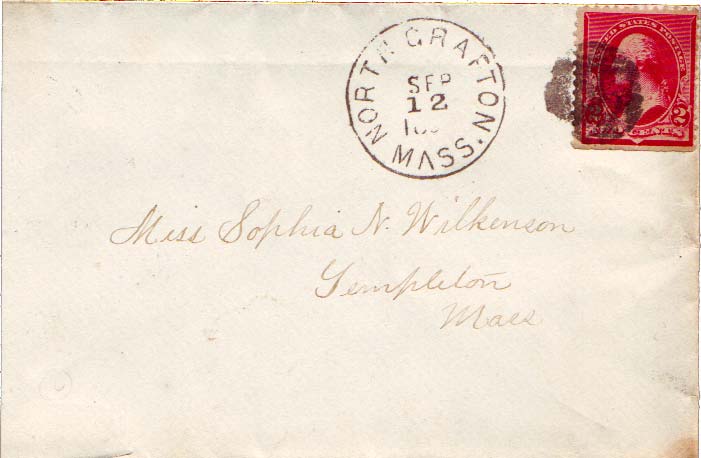 NORTH GRAFTON
SEP
12
MASS.
UNITED STATES POSTAGE
2 CENTS 2
Miss Sophia N. Wilkenson
Templeton
Mass